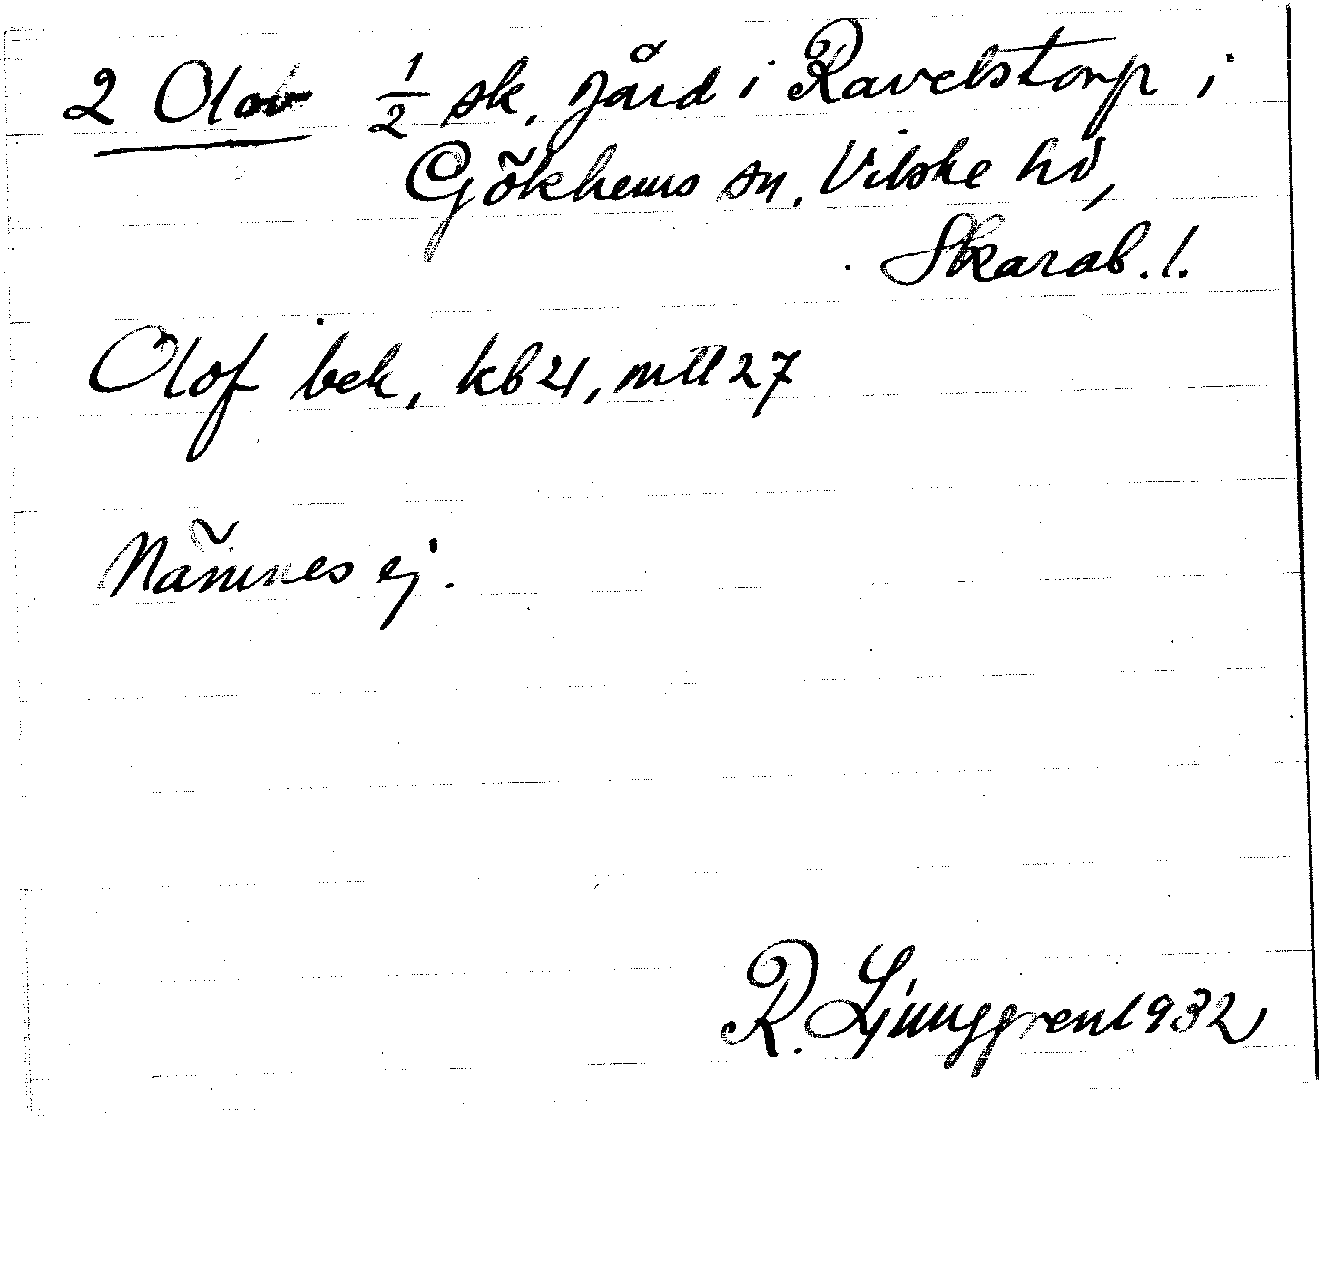 2 Olov ½ sk. gård i Ravelstorp i
Gökhems sn. Vilske hd,
Skarab. l.
Olof bek, kb 21, mtl 27
Nämnes ej.
R. Ljunggren 1932